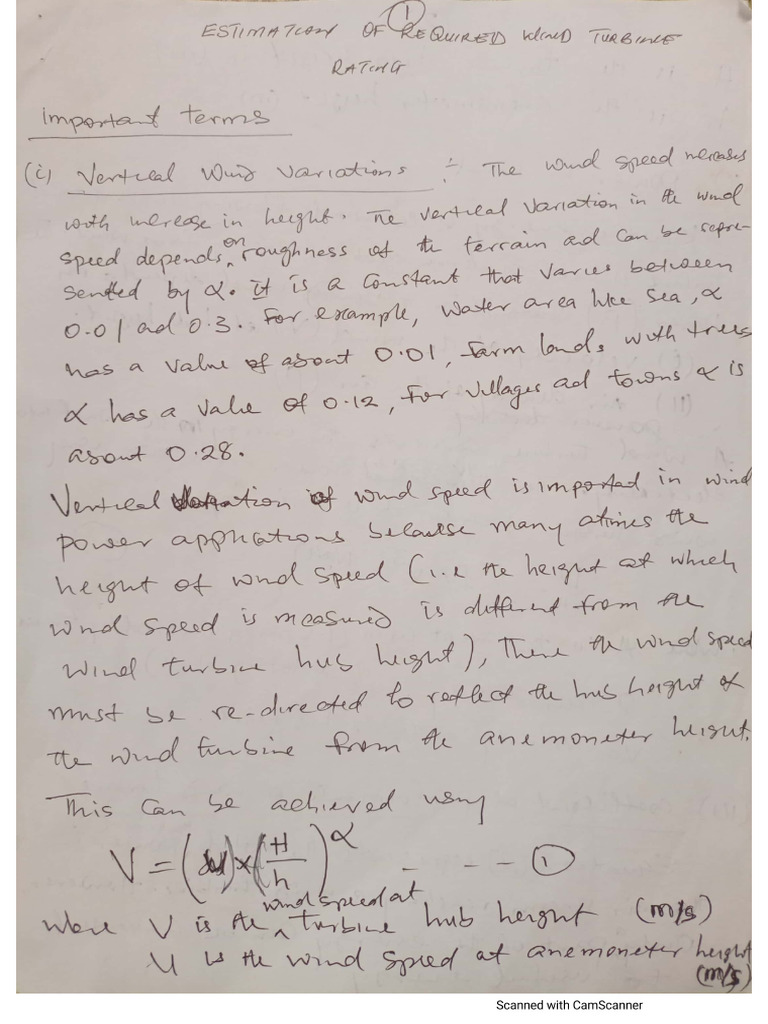 1
ESTIMATION OF REQUIRED WIND TURBINE
RATING
Important terms
(i) Vertical Wind Variations :- The wind speed increases
with increase in height. The vertical variation in the wind
speed depends on roughness of the terrain ad can be repre-
sented by α. It is a constant that varies between
0.01 ad 0.3. For example, water area like sea, α
has a value of about 0.01, farm lands with trees
α has a value of 0.12, for villages ad towns α is
about 0.28.
Vertical variation of wind speed is important in wind
power applications because many atimes the
height of wind speed (i.e the height at which
wind speed is measured is different from the
wind turbine hub height), the wind speed
must be re-directed to reflect the hub height of
the wind turbine from the anemometer height.
This can be achieved using
V = (U) × (H/h)^α - - - - ①
where V is the wind speed at turbine hub height (m/s)
U is the wind speed at anemometer height
(m/s)
Scanned with CamScanner